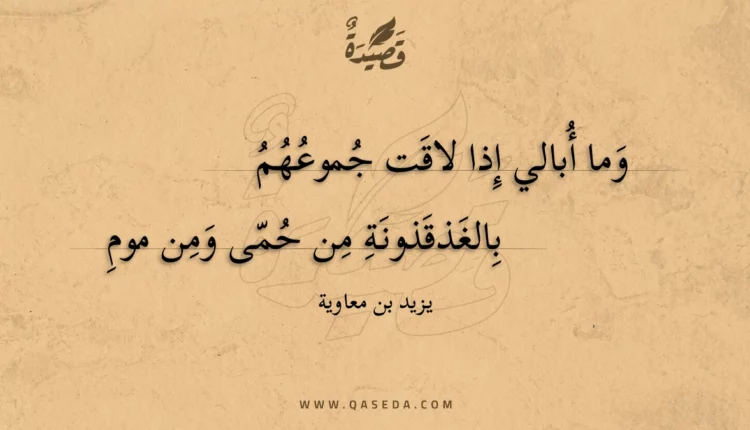 قَصِيْدَةٌ
وَما أُبالي إِذا لاقَت جُموعُهُمُ
بِالغَذقَذونَةِ مِن حُمّى وَمِن مومِ
يزيد بن معاوية
WWW.QASEDA.COM